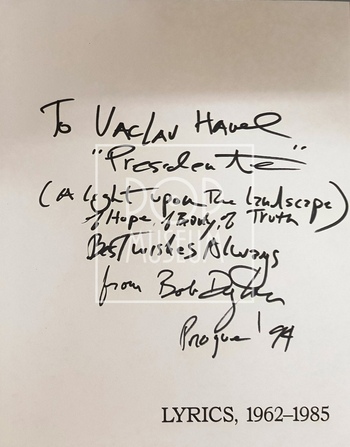 To Vaclav Havel
"Presidente"
(A light upon The Landscape)
of Hope, of Body, of Truth
Best wishes Always
from Bob Dylan
Prague '94
POP
MUSEUM
LYRICS, 1962–1985